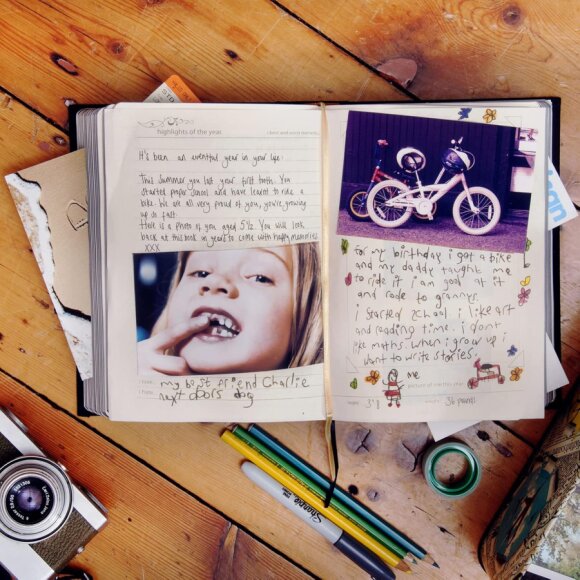 highlights of the year
It's been an eventful year in your life.
This summer you lost your first tooth. You
started proper school and have learnt to ride a
bike. We are all very proud of you, you're growing
up so fast.
Here is a photo of you aged 5½. You will look
back at this book in years to come with happy memories.
xxx
i love
my best friend Charlie
i hate
next doors dog
for my birthday i got a bike
and my daddy taught me
to ride it i am good at it
and rode to grannys.
i started school. i like art
and reading time. i dont
like maths. when i grow up i
want to write stories.
me
picture of me this year
3'8
36 pounds
Sharpie